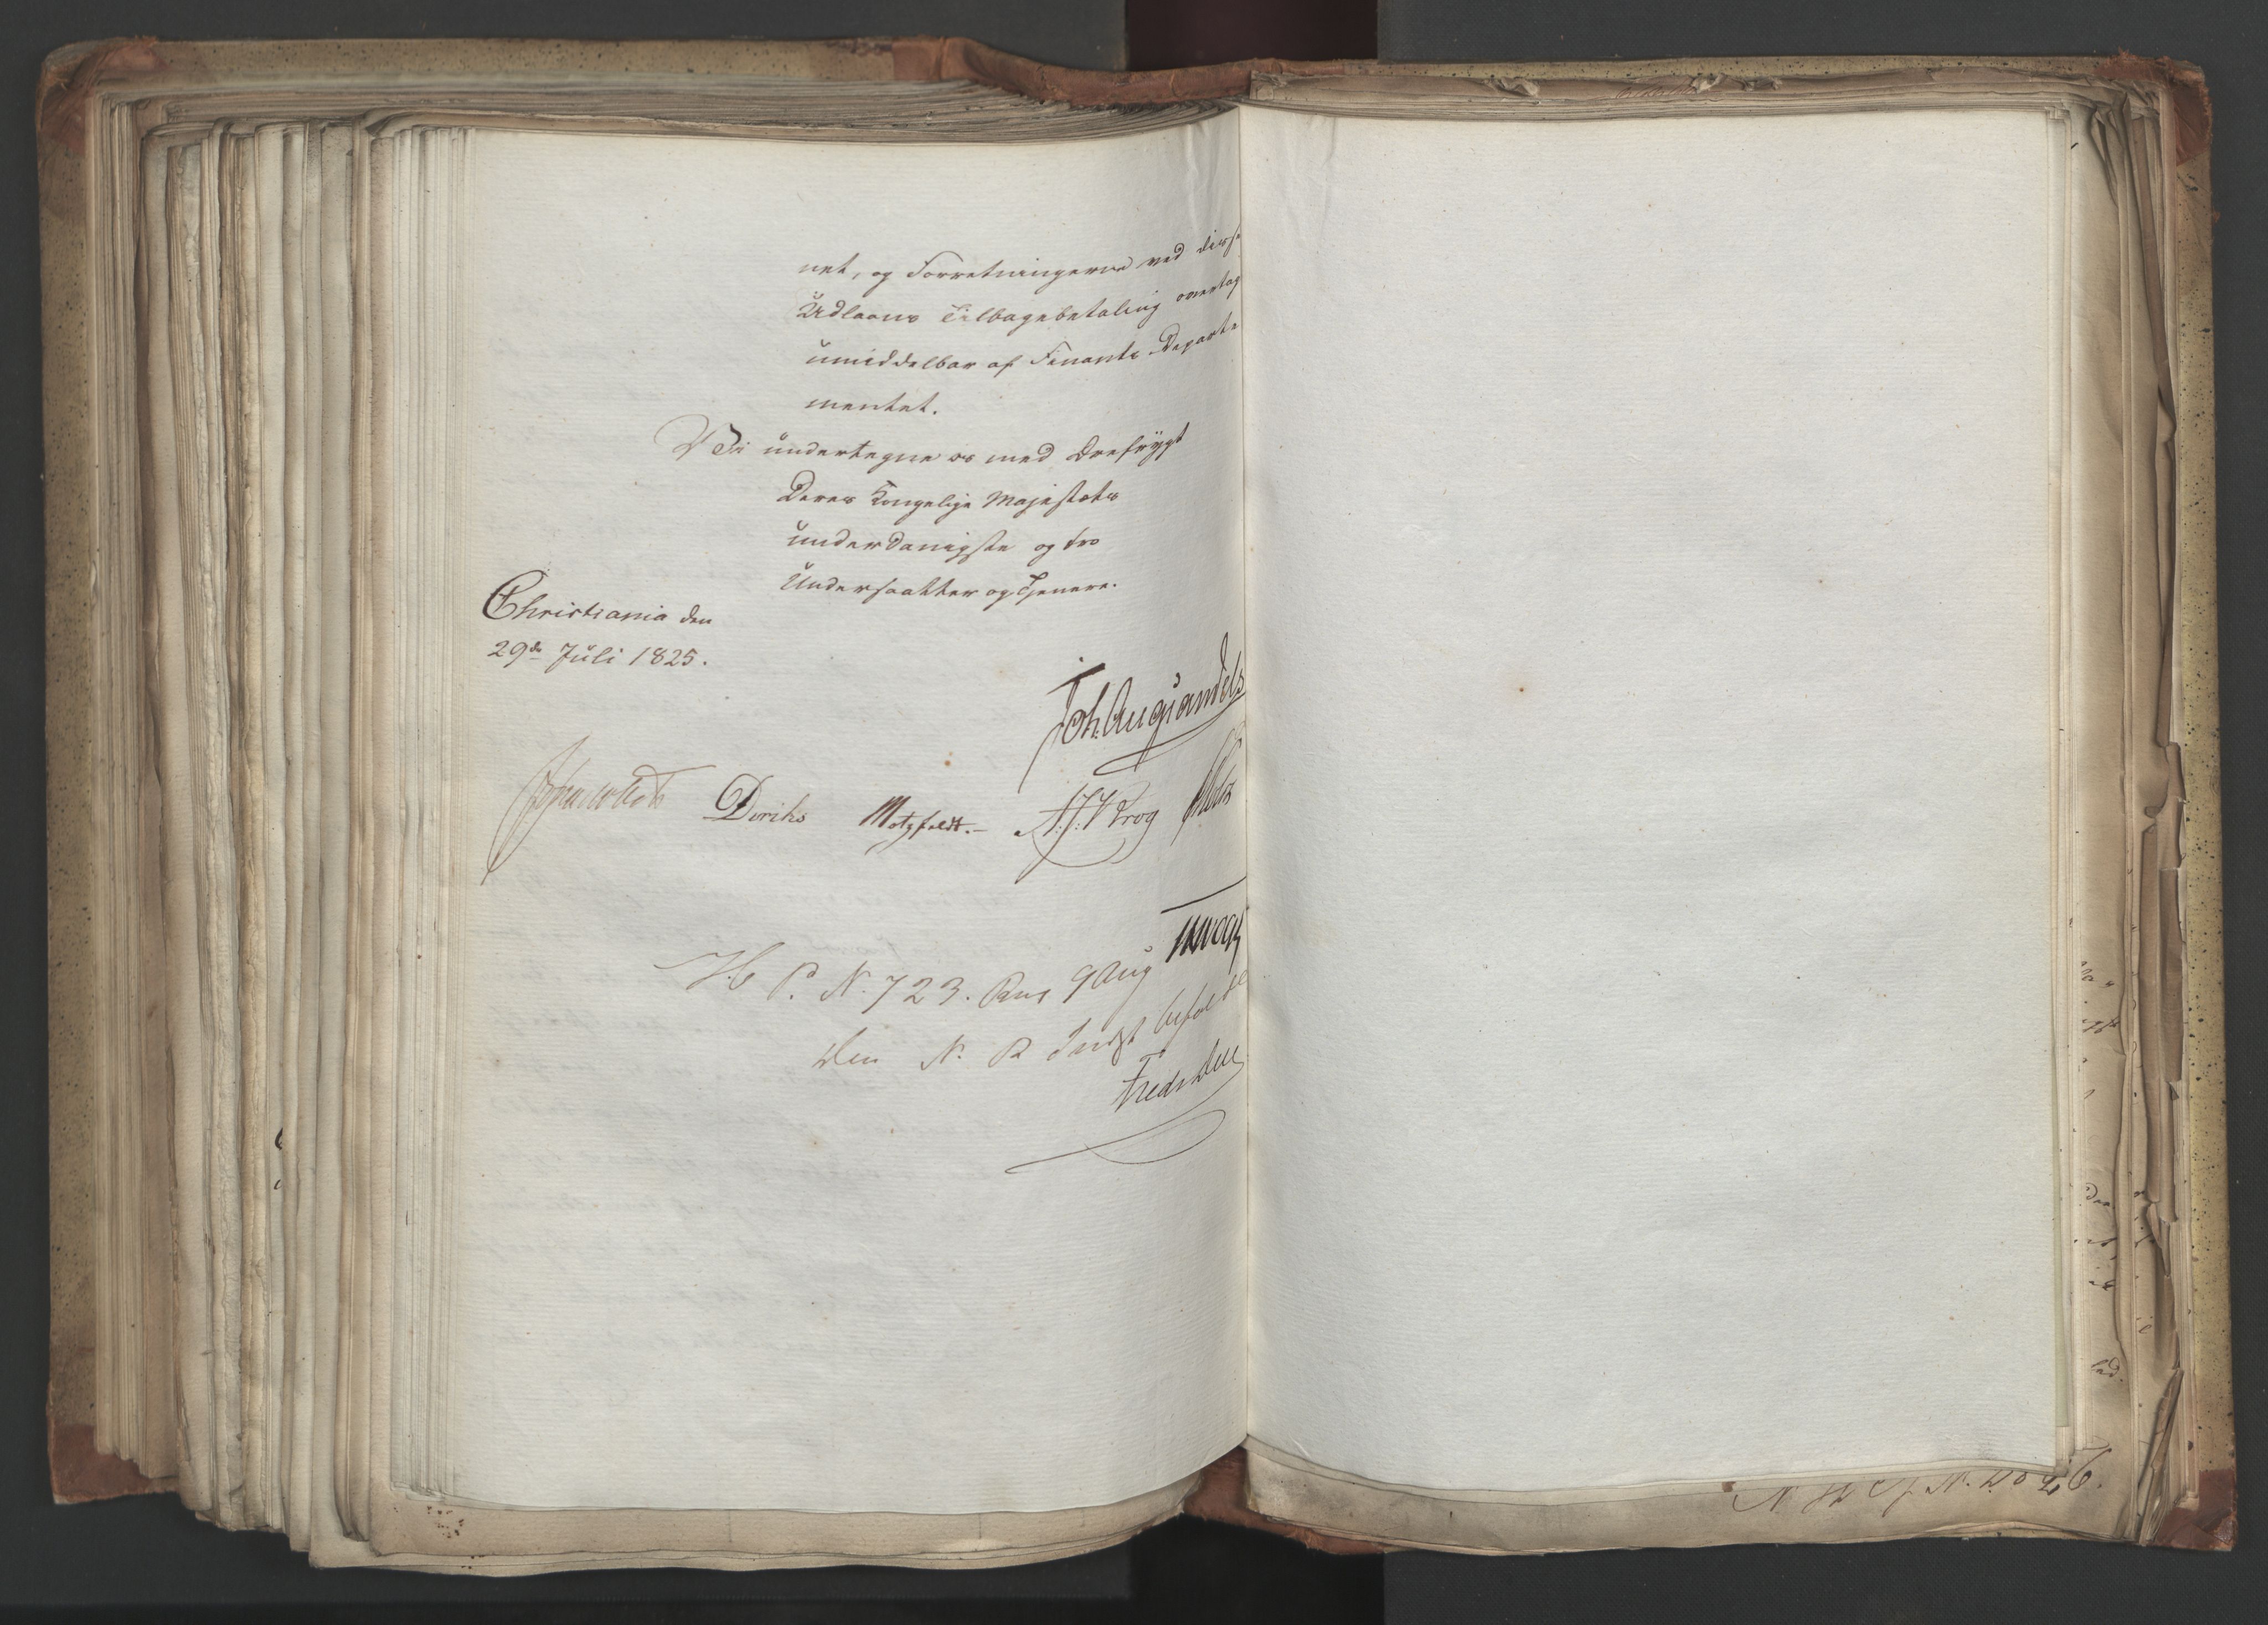 net, og Forretningerne ved disse
Udlaans Tilbagebetaling overtag
umiddelbar af Finants-Departe
mentet.
Vi undertegne os med Ærefrygt
Deres Kongelige Majestæts
underdanigste og tro
Undersaatter og Tjenere.
Christiania den
29de Juli 1825.
Joh: Aug: Sandels
Diriks Motzfeldt.- A: J: Krog
H P. N. 723. 9 Aug
den N. R Indst befalede
Fred: Due